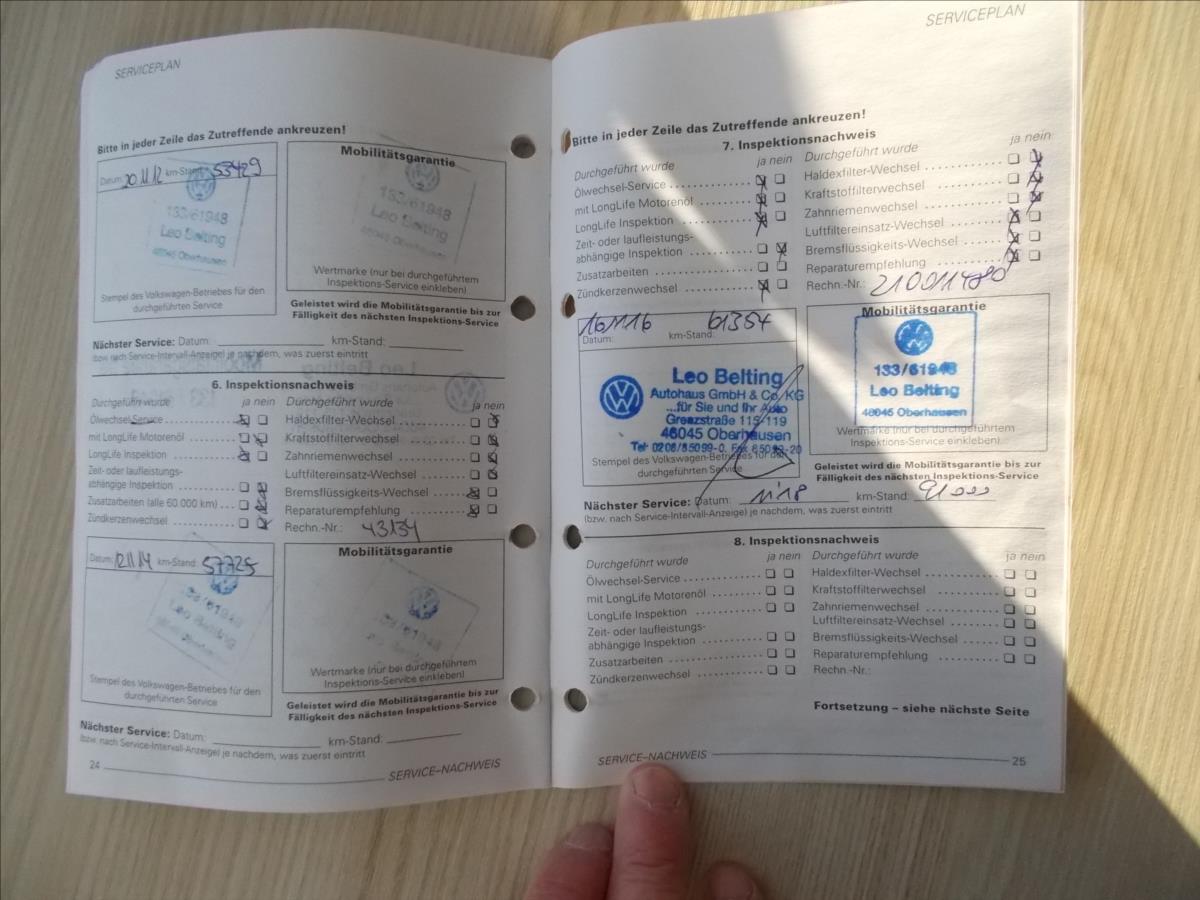 SERVICEPLAN
Bitte in jeder Zeile das Zutreffende ankreuzen!
Datum: 20.11.12 km-Stand: 53429
133/61948
Leo Belting
46045 Oberhausen
Stempel des Volkswagen-Betriebes für den
durchgeführten Service
Mobilitätsgarantie
133/61948
Leo Belting
46045 Oberhausen
Wertmarke (nur bei durchgeführtem
Inspektions-Service einkleben)
Geleistet wird die Mobilitätsgarantie bis zur
Fälligkeit des nächsten Inspektions-Service
Nächster Service: Datum: km-Stand:
(bzw. nach Service-Intervall-Anzeige) je nachdem, was zuerst eintritt
6. Inspektionsnachweis
Durchgeführt wurde ja nein
Ölwechsel-Service
mit LongLife Motorenöl
LongLife Inspektion
Zeit- oder laufleistungs-
abhängige Inspektion
Zusatzarbeiten (alle 60.000 km)
Zündkerzenwechsel
Durchgeführt wurde ja nein
Haldexfilter-Wechsel
Kraftstoffilterwechsel
Zahnriemenwechsel
Luftfiltereinsatz-Wechsel
Bremsflüssigkeits-Wechsel
Reparaturempfehlung
Rechn.-Nr.: 43134
Datum: 12.11.14 km-Stand: 57725
133/61948
Leo Belting
Stempel des Volkswagen-Betriebes für den
durchgeführten Service
Mobilitätsgarantie
133/61948
Wertmarke (nur bei durchgeführtem
Inspektions-Service einkleben)
Geleistet wird die Mobilitätsgarantie bis zur
Fälligkeit des nächsten Inspektions-Service
Nächster Service: Datum: km-Stand:
(bzw. nach Service-Intervall-Anzeige) je nachdem, was zuerst eintritt
24 SERVICE–NACHWEIS
SERVICEPLAN
Bitte in jeder Zeile das Zutreffende ankreuzen!
7. Inspektionsnachweis
Durchgeführt wurde ja nein
Ölwechsel-Service
mit LongLife Motorenöl
LongLife Inspektion
Zeit- oder laufleistungs-
abhängige Inspektion
Zusatzarbeiten
Zündkerzenwechsel
Durchgeführt wurde ja nein
Haldexfilter-Wechsel
Kraftstoffilterwechsel
Zahnriemenwechsel
Luftfiltereinsatz-Wechsel
Bremsflüssigkeits-Wechsel
Reparaturempfehlung
Rechn.-Nr.: 210011480
16.11.16 61354
Datum: km-Stand:
Leo Belting
Autohaus GmbH & Co. KG
...für Sie und Ihr Auto
Grenzstraße 115-119
46045 Oberhausen
Tel: 0208/85099-0. Fax 85099-20
Stempel des Volkswagen-Betriebes für den
durchgeführten Service
Mobilitätsgarantie
133/61948
Leo Belting
46045 Oberhausen
Wertmarke (nur bei durchgeführtem
Inspektions-Service einkleben)
Geleistet wird die Mobilitätsgarantie bis zur
Fälligkeit des nächsten Inspektions-Service
Nächster Service: Datum: 11.18 km-Stand: 91000
(bzw. nach Service-Intervall-Anzeige) je nachdem, was zuerst eintritt
8. Inspektionsnachweis
Durchgeführt wurde ja nein
Ölwechsel-Service
mit LongLife Motorenöl
LongLife Inspektion
Zeit- oder laufleistungs-
abhängige Inspektion
Zusatzarbeiten
Zündkerzenwechsel
Durchgeführt wurde ja nein
Haldexfilter-Wechsel
Kraftstoffilterwechsel
Zahnriemenwechsel
Luftfiltereinsatz-Wechsel
Bremsflüssigkeits-Wechsel
Reparaturempfehlung
Rechn.-Nr.:
Fortsetzung – siehe nächste Seite
SERVICE–NACHWEIS 25